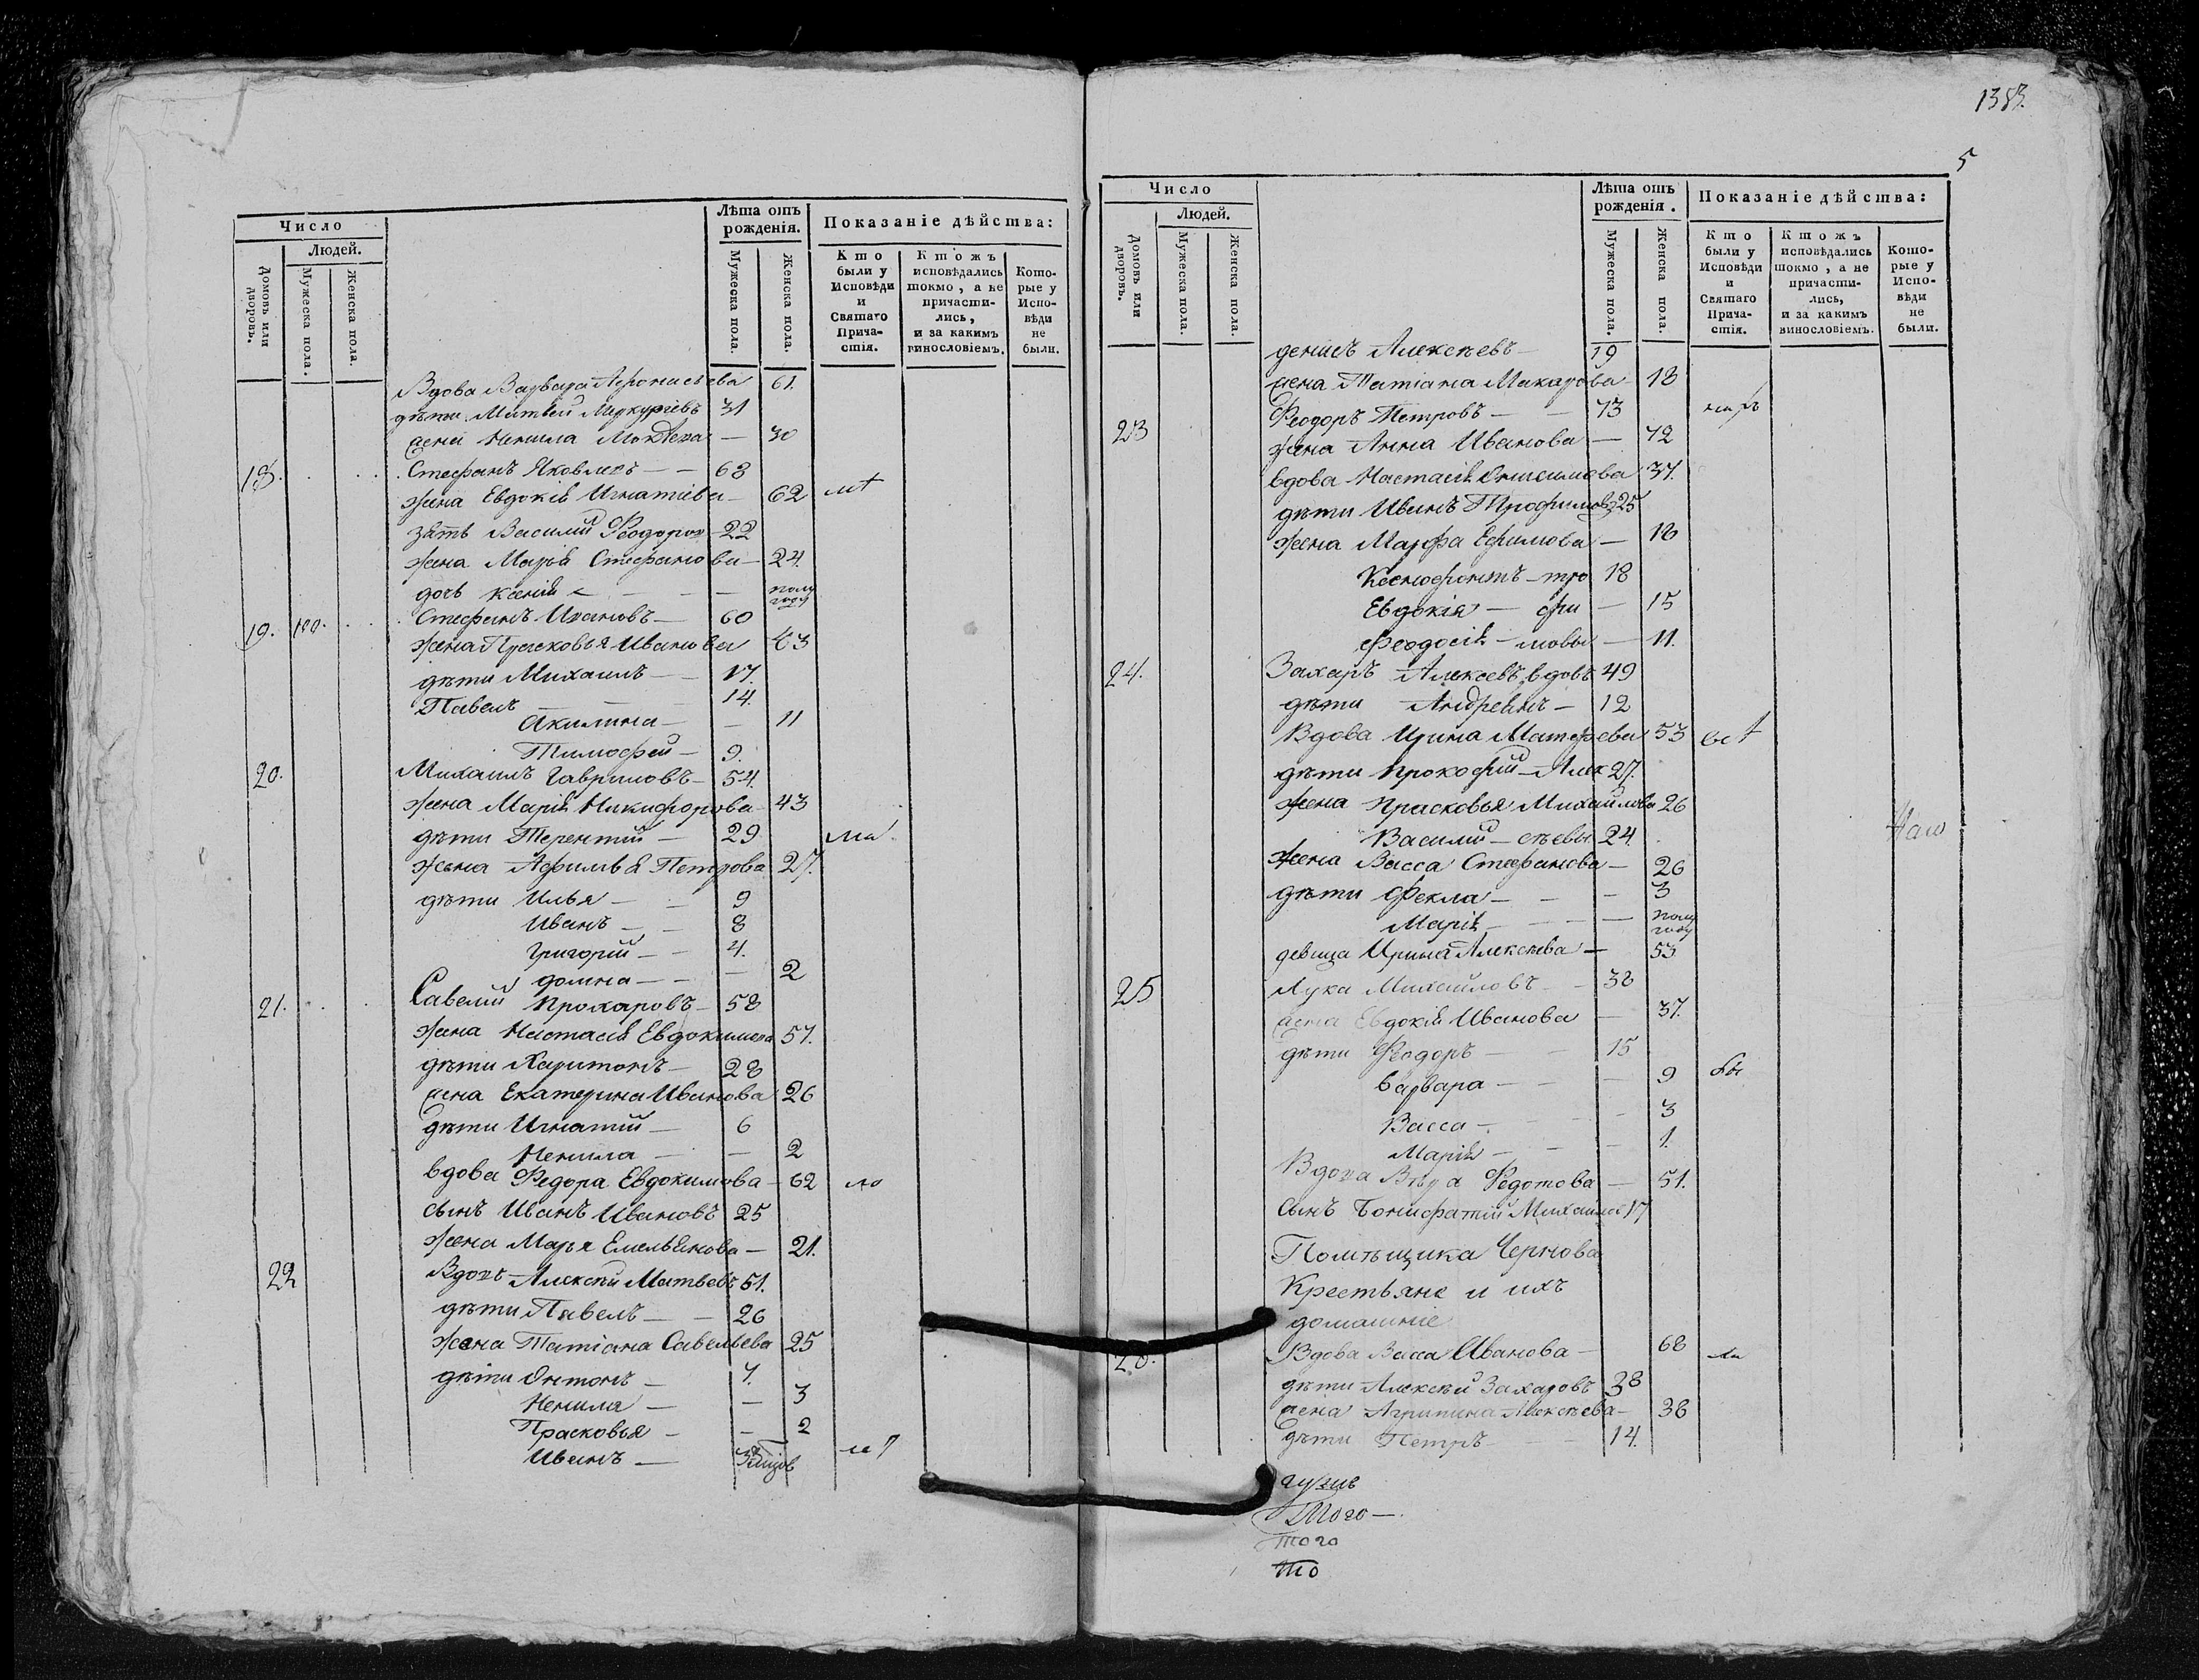 Число
Людей.
Домовъ или дворовъ.
Мужеска пола.
Женска пола.
Лѣта отъ рожденія.
Мужеска пола.
Женска пола.
Показаніе дѣйства:
Кто были у Исповѣди и Святаго Прича- стія.
Ктожъ исповѣдались токмо, а не причасти- лись, и за какимъ винословіемъ.
Кото- рые у Испо- вѣди не были.
Вдова Варвара Афонасьева 61.
дѣти Матвей Меркурьевъ 31
жена Ненила 30
18. Стефанъ Яковлевъ 63
жена Евдокія Игнатіева 62
зять Василий Феодоров 22
жена Марья Стефанова 24.
дочь Ксенія полу году
19. Стефанъ Ивановъ 60
жена Прасковья Иванова 63
дѣти Михаилъ 17.
Павелъ 14.
Акилина 11
Тимофей 9.
20. Михаилъ Гавриловъ 54.
жена Марія Никифорова 43
дѣти Терентий 29
жена Афимья Петрова 27.
дѣти Илья 9
Иванъ 8
Григорій 4.
домна 2
21. Савелий Прохаровъ 58
жена Настасія Евдокимова 57.
дѣти Харитонъ 28
жена Екатерина Иванова 26
дѣти Игнатий 6
Ненила 2
вдова Федора Евдокимова 62
сынъ Иванъ Ивановъ 25
жена Марья Емельянова 21.
22 Вдовъ Алексѣй Матвеевъ 51.
дѣти Павелъ 26
жена Татіана Савельева 25
дѣти Антонъ 7.
Ненила 3
Прасковья 2
Иванъ
1383.
5
Число
Людей.
Домовъ или дворовъ.
Мужеска пола.
Женска пола.
Лѣта отъ рожденія.
Мужеска пола.
Женска пола.
Показаніе дѣйства:
Кто были у Исповѣди и Святаго Прича- стія.
Ктожъ исповѣдались токмо, а не причасти- лись, и за какимъ винословіемъ.
Кото- рые у Испо- вѣди не были.
денисъ Алексѣевъ 19
жена Татіана Макарова 18
23 Феодоръ Петровъ 73
жена Анна Иванова 72
вдова Настасія Онисимова 37.
дѣти Иванъ Трофимовъ 25
жена Марфа Ефимова 18
Ксенофонтъ тро 18
Евдокія фи 15
Феодосія мовы 11.
24. Захаръ Алексевъ вдовъ 49
дѣти Андреянъ 12
Вдова Ирина Матфеева 53
дѣти Прокофий Алек 27.
жена Прасковья Михайлова 26
Василий сѣевы 24.
жена Васса Стефанова 26
дѣти Фекла 3
Марія полу году
девица Ирина Алексѣева 53
25 Лука Михайловъ 38
жена Евдокія Иванова 37.
дѣти Феодоръ 15
Варвара 9
Васса 3
Марія 1.
Вдова Вѣра Федотова 51.
Сынъ Бонифатий Михайлов 17
Помѣщика Чернова
Крестьяне и ихъ
домашние
Вдова Васса Иванова 68
дѣти Алексѣй Захаровъ 38
жена Агрипина Алексѣева 38
дѣти Петръ 14.
Того
того
то